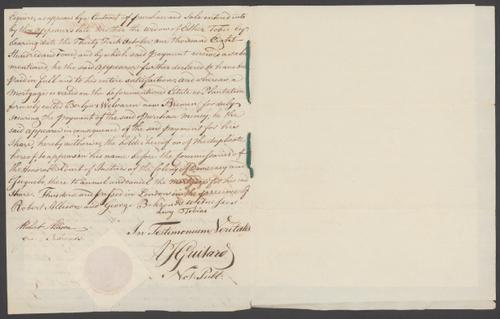 Esquire, as appears by a Contract of purchase and Sale entered into
by the appearers late Brother the
bearing date the Thirty first October one thousand Eight
Hundred and and by which said payment
mentioned, he the said appearer further declares to have been
paid in full and to his entire satisfaction, and whereas a
Mortgage is vested on the beforementioned Estate or Plantation
formerly called now Bremen, for duly
securing the payment of the said Purchase Money, he the
said appearer in consequence of the said payment for his
Share, hereby authorises the holder hereof or of the duplicate
hereof to appear in his name before the Commissaries of
the Honorable Court of Justice of the Colony of Demerary and
Essequebo, there to annul and cancel the mortgage for his said
Share. Thus done and passed in London in the presence of
Robert Allison and George witnesses
Levy Tobias
Robert Allison
In Testimonium Veritatis
Not. Publ.